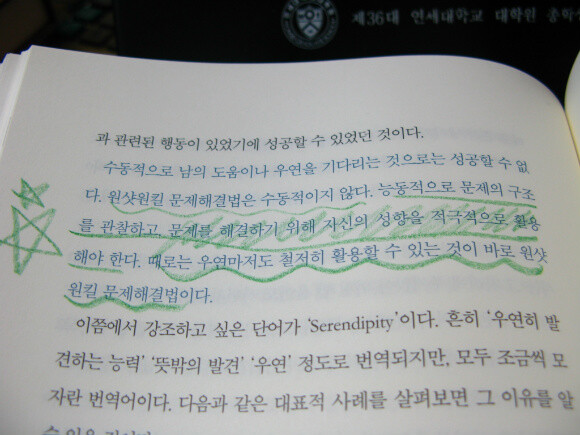 제36대 연세대학교 대학원 총학
과 관련된 행동이 있었기에 성공할 수 있었던 것이다.
수동적으로 남의 도움이나 우연을 기다리는 것으로는 성공할 수 없
다. 원샷원킬 문제해결법은 수동적이지 않다. 능동적으로 문제의 구조
를 관찰하고, 문제를 해결하기 위해 자신의 성향을 적극적으로 활용
해야 한다. 때로는 우연마저도 철저히 활용할 수 있는 것이 바로 원샷
원킬 문제해결법이다.
이쯤에서 강조하고 싶은 단어가 ‘Serendipity’이다. 흔히 ‘우연히 발
견하는 능력’ ‘뜻밖의 발견’ ‘우연’ 정도로 번역되지만, 모두 조금씩 모
자란 번역어이다. 다음과 같은 대표적 사례를 살펴보면 그 이유를 알